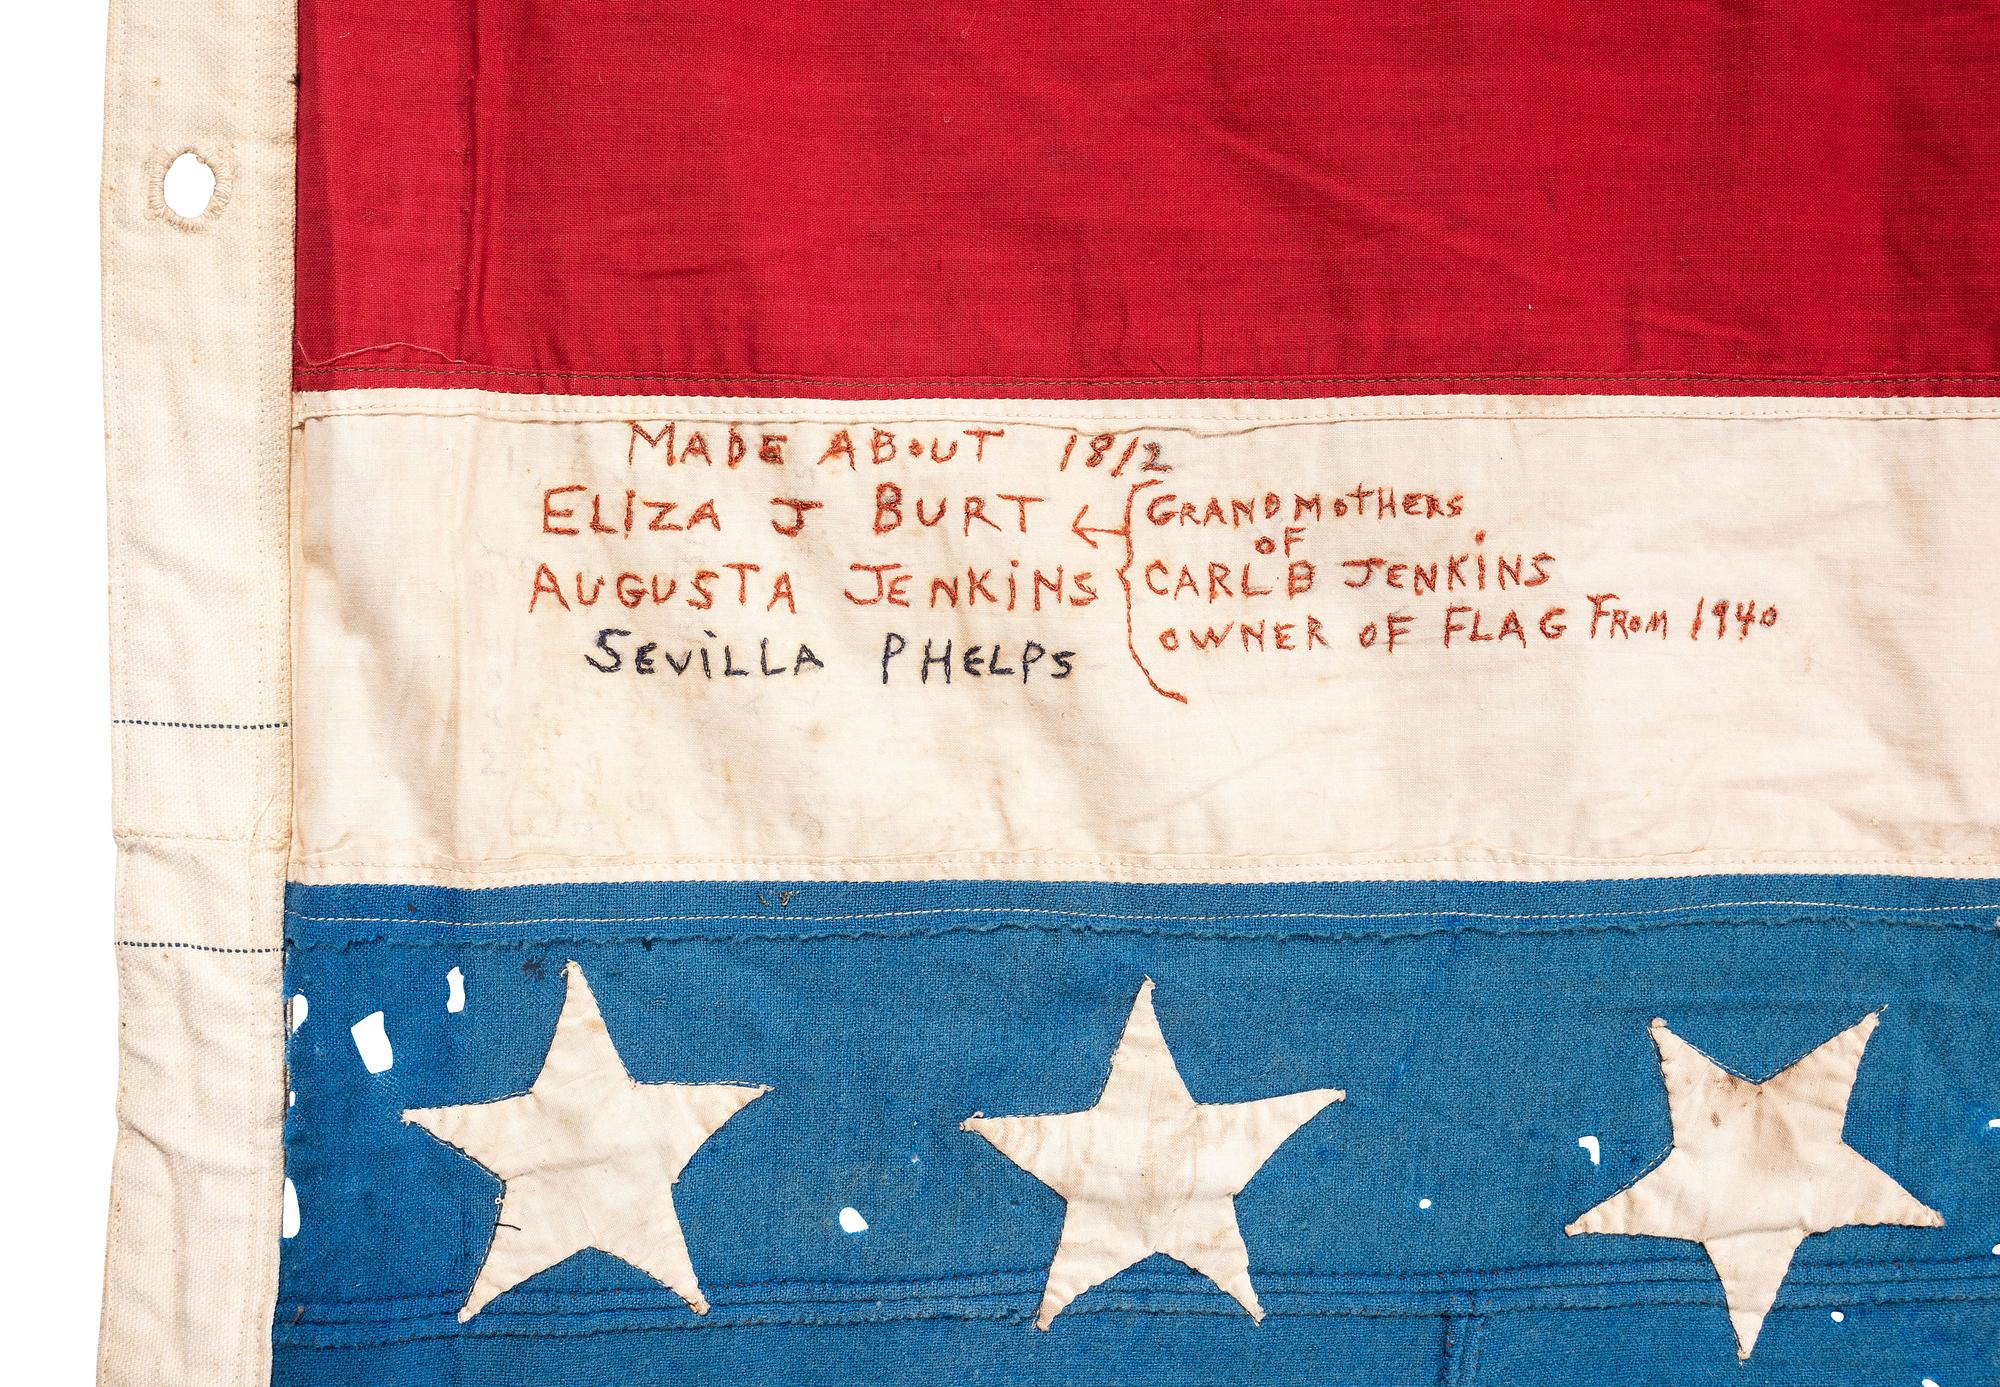 MADE ABOUT 1812
ELIZA J BURT ← { GRANDMOTHERS
OF
AUGUSTA JENKINS CARL B JENKINS
OWNER OF FLAG FROM 1940
SEViLLA PHELPS